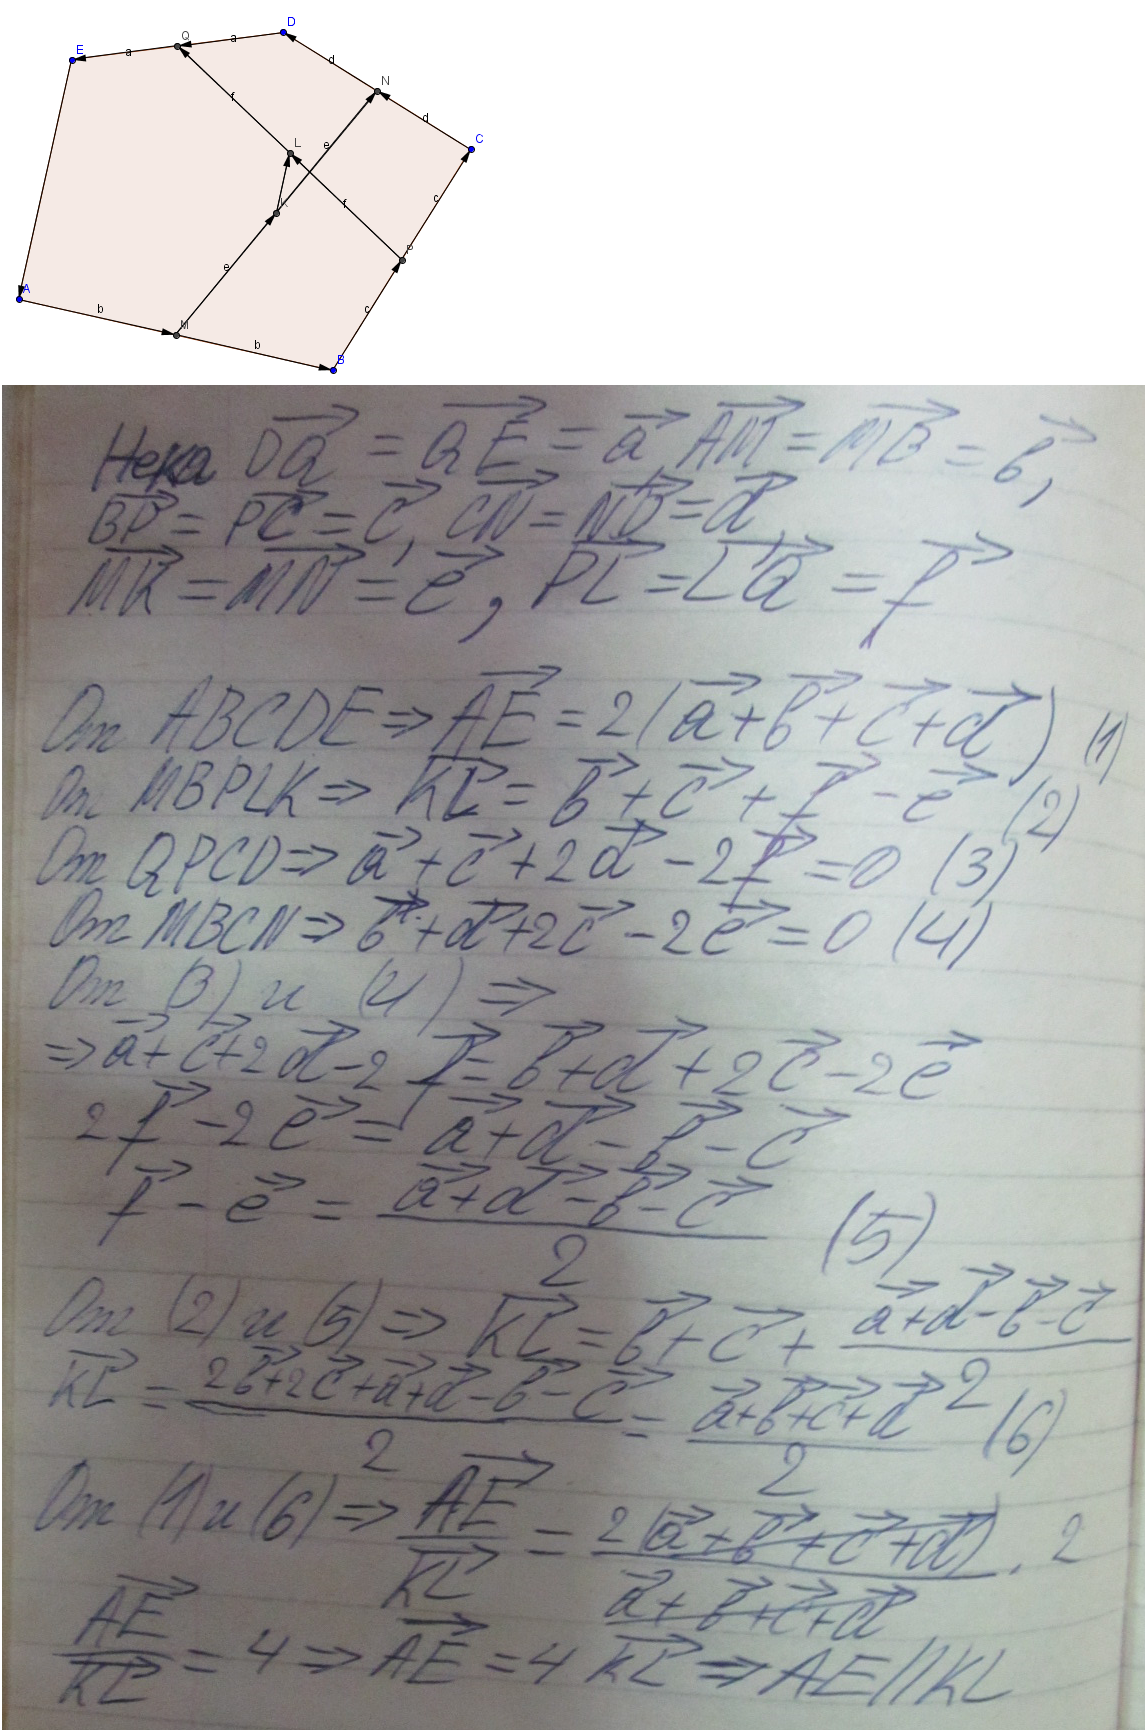 D
E
Q
a
a
d
N
f
d
C
L
e
c
K
f
P
e
A
b
c
M
b
B
Нека DQ = QE = a AM = MB = b,
BP = PC = c, CN = ND = d
MK = MN = e, PL = LQ = f
От ABCDE ⇒ AE = 2(a + b + c + d) (1)
От MBPLK ⇒ KL = b + c + f - e (2)
От QPCD ⇒ a + c + 2d - 2f = 0 (3)
От MBCN ⇒ b + d + 2c - 2e = 0 (4)
От (3) и (4) ⇒
⇒ a + c + 2d - 2f = b + d + 2c - 2e
2f - 2e = a + d - b - c
f - e = (a + d - b - c)/2 (5)
От (2) и (5) ⇒ KL = b + c + (a + d - b - c)/2
KL = (2b + 2c + a + d - b - c)/2 = (a + b + c + d)/2 (6)
От (1) и (6) ⇒ AE/KL = 2(a + b + c + d)/(a + b + c + d) . 2
AE/KL = 4 ⇒ AE = 4 KL ⇒ AE || KL